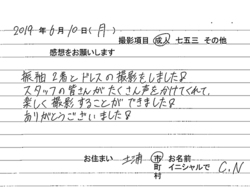 2019年6月10日(月)
撮影項目 成人 七五三 その他
感想をお願いします
振袖2着とドレスの撮影をしました♡
スタッフの皆さんがたくさん声をかけてくれて、
楽しく撮影することができました♡
ありがとうございました♡
お住まい 土浦 市町村 お名前イニシャルで C.N